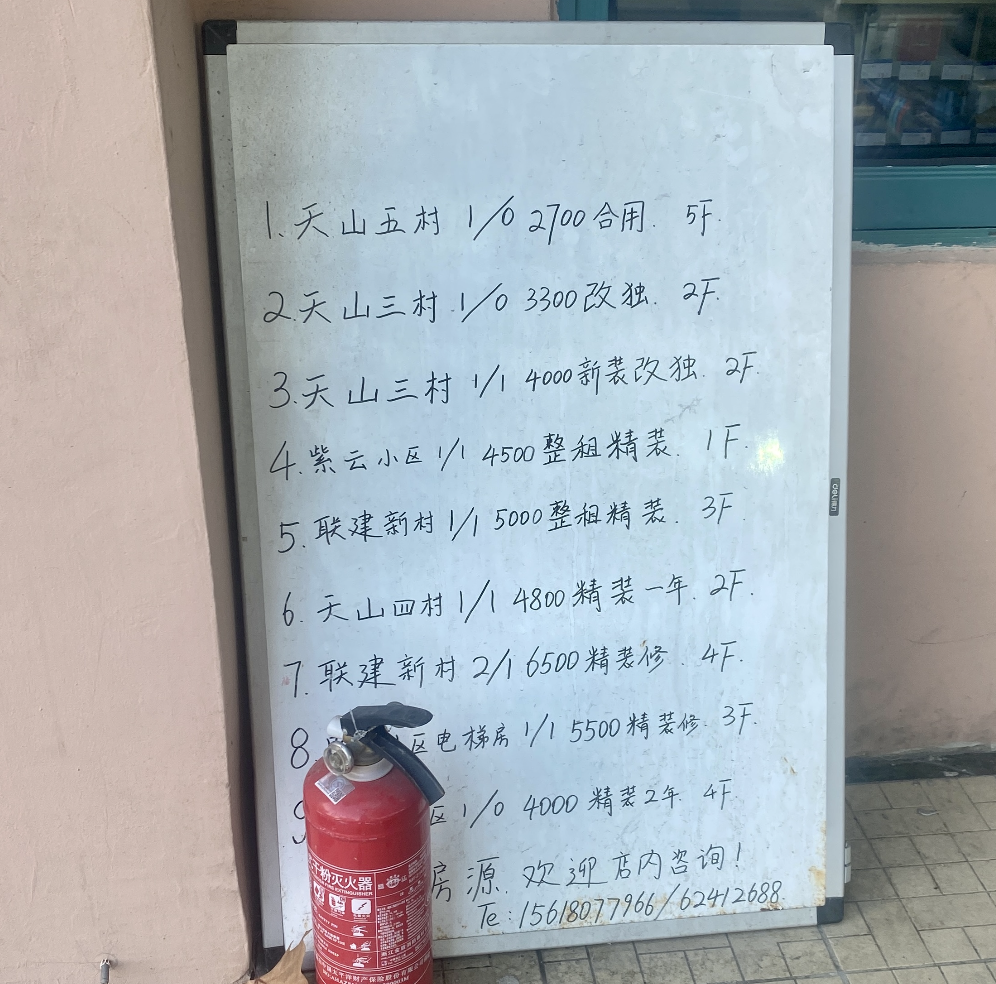 1. 天山五村 1/0 2700合用. 5F.
2. 天山三村 1/0 3300改独. 2F.
3. 天山三村 1/1 4000新装改独. 2F.
4. 紫云小区 1/1 4500整租精装. 1F.
5. 联建新村 1/1 5000整租精装. 3F.
6. 天山四村 1/1 4800精装一年. 2F.
7. 联建新村 2/1 6500精装修. 4F.
8 区电梯房 1/1 5500精装修. 3F.
9 区 1/0 4000 精装2年. 4F.
房源. 欢迎店内咨询!
Te: 15618077966/62412688
deli
干粉灭火器